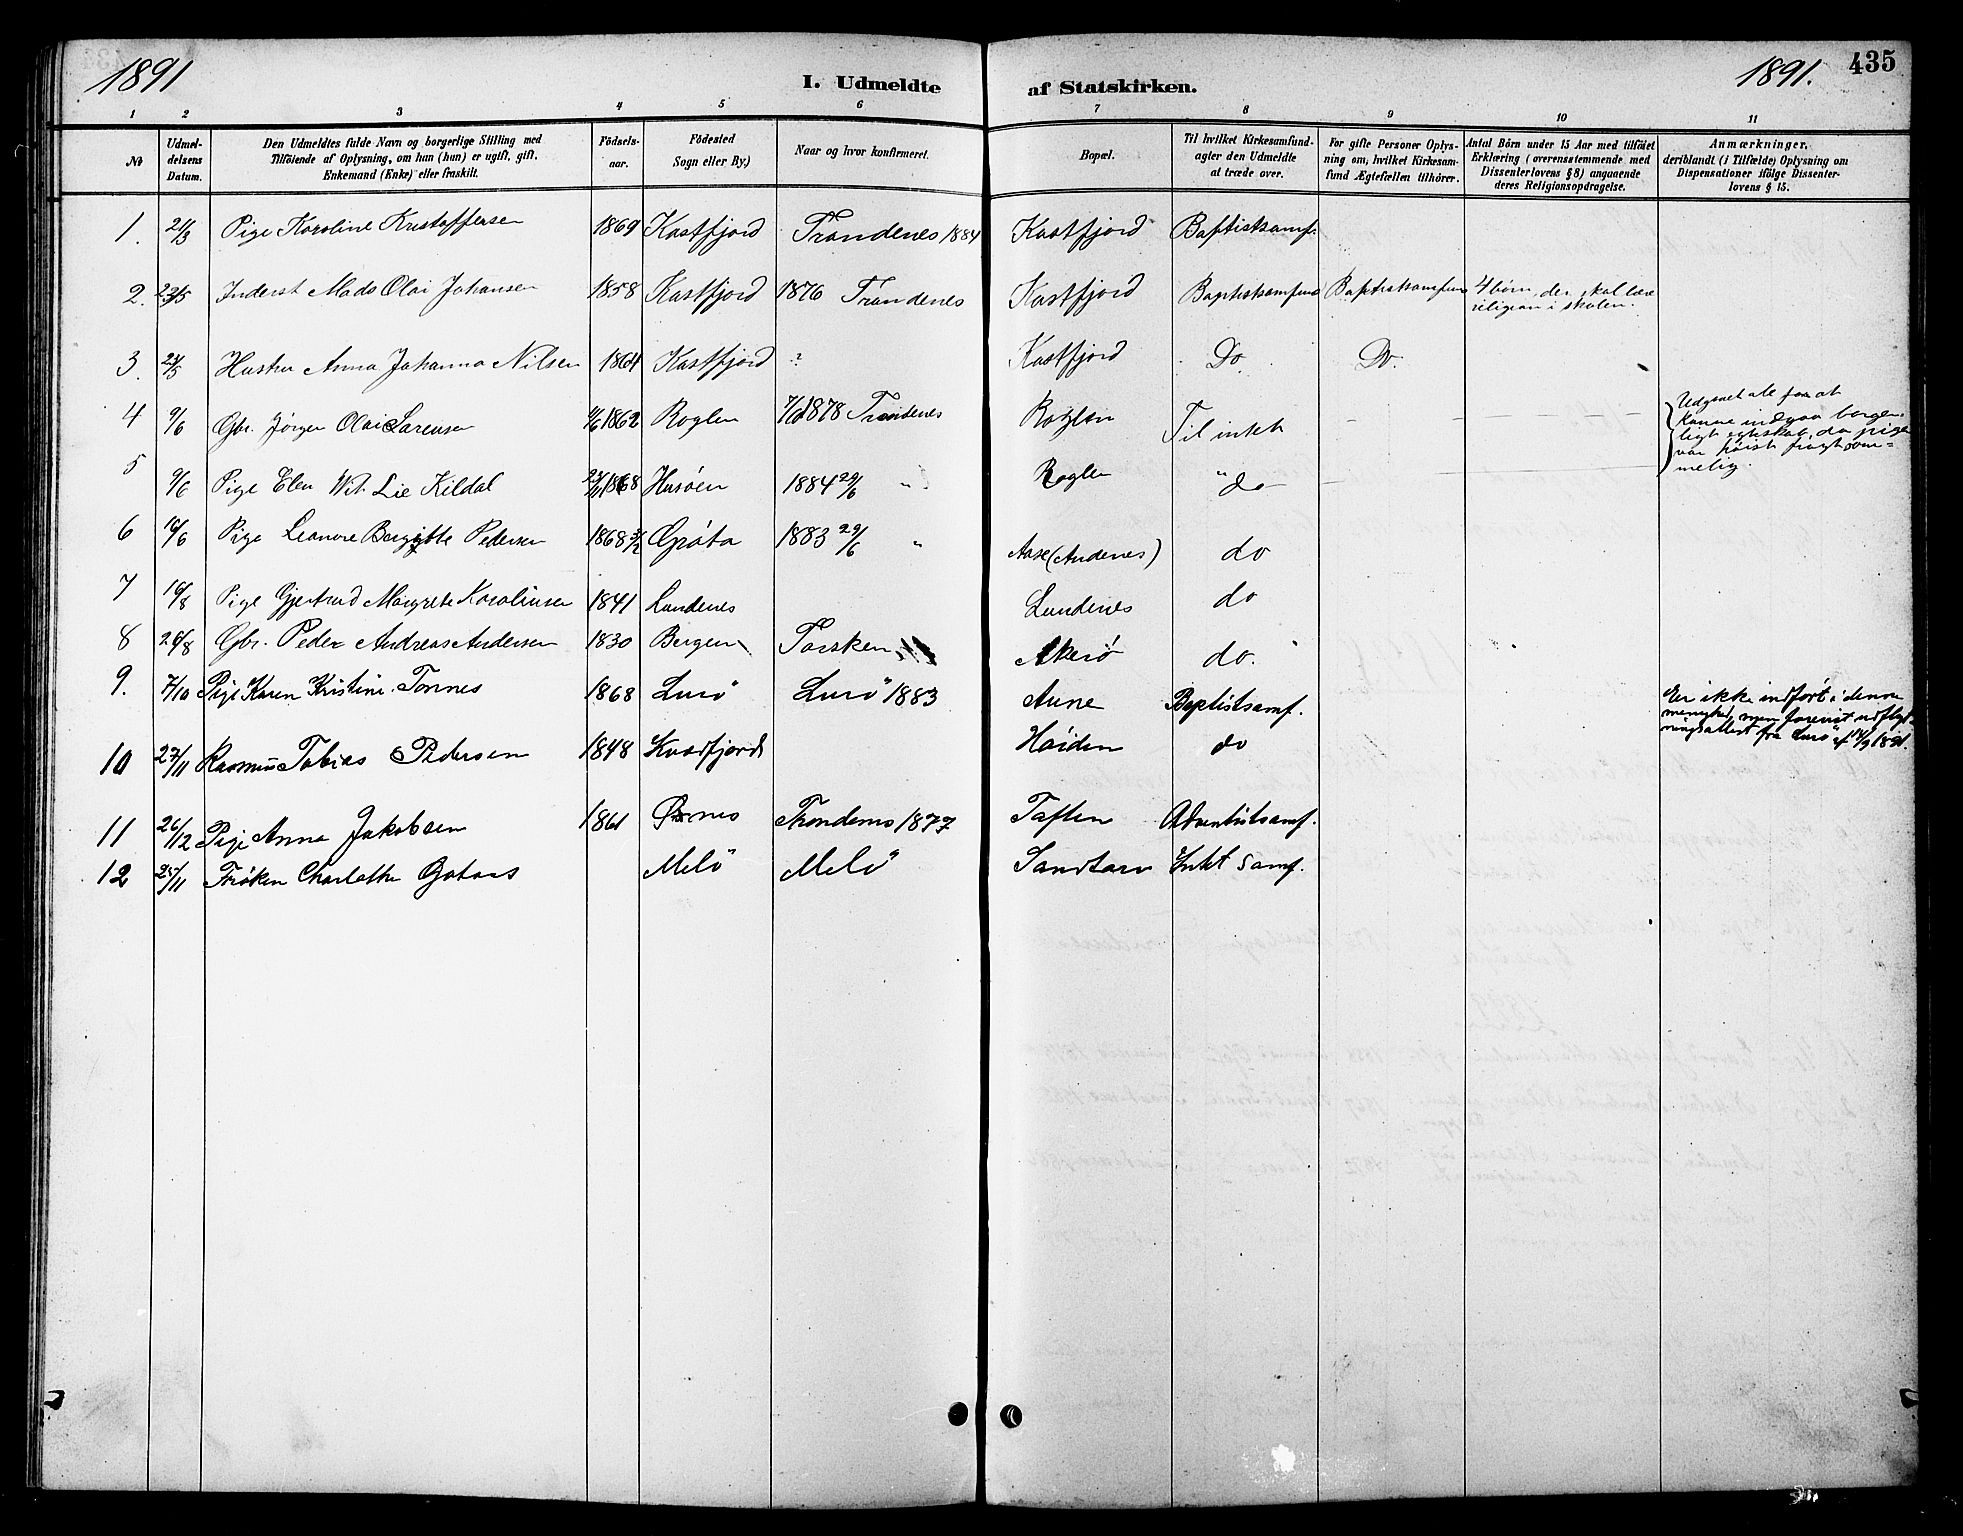 1891
I. Udmeldte af Statskirken.
1891.
435
1 2 3 4 5 6 7 8 9 10 11
No
Udmeldelsens Datum.
Den Udmeldtes fulde Navn og borgerlige Stilling med Tilföiende af Oplysning, om han (hun) er ugift, gift, Enkemand (Enke) eller fraskilt.
Födselsaar.
Födested Sogn eller By.)
Naar og hvor konfirmeret.
Bopæl.
Til hvilket Kirkesamfund agter den Udmeldte at træde over.
For gifte Personer Oplysning om, hvilket Kirkesamfund Ægtefællen tilhörer.
Antal Börn under 15 Aar med tilföiet Erklæring (overensstemmende med Dissenterlovens § 8) angaaende deres Religionsopdragelse.
Anmærkninger, deriblandt (i Tilfælde) Oplysning om Dispensationer ifölge Dissenterlovens § 15.
1. 21/3 Pige Karoline Kristoffersen 1869 Kastfjord Trondenes 1884 Kastfjord Baptistsamf.
2. 23/5 Inderst Mads Olai Johansen 1858 Kastfjord 1876 Trondenes Kastfjord Baptistsamfund Baptistsamfun 4 börn, der skal lære
religion i skolen.
3. 23/5 Hustru Anna Johanna Nilsen 1864 Kastfjord ? Kastfjord Do Do.
4 9/6 Gbr. Jørgen Olai Sørensen 1862 Roglen 1878 Trondenes Roglen Til intet
Udgaaet ale for at
kunne indgaa borger-
ligt egteskab, da pigen
var höist frugtsom-
melig.
5 9/6 Pige Elen Wit. Lie Kildal 1868 Husöen 1884 29/6 " Roglen " do
6 10/6 Pige Leonore Bergitte Pedersen 1868 Gröta 1883 29/6 " Aase (Andenes) do
7 16/8 Pige Gjertrud Margrete Karolinsen 1841 Lundenes Lundenes do
8 26/8 Gbr. Peder Andreas Andersen 1830 Bergen Torsken Akerö do.
9. 7/10 Pige Karen Kristine Tönnes 1868 Lurö Lurö 1883 Aune Baptistsamf.
Er ikke indført i denne
menighed, men forevist udflyt-
ningsattest fra Lurö af 14/9 1891.
10 27/11 Rasmus Tobias Pedersen 1848 Kvæfjord Höiden do
11 26/12 Pige Anna Jakobsen 1861 Ørnes Trondenes 1877 Taften Adventistsamf.
12 25/11 Frøken Charlotte Gotaas Melö Melö Sandtorv Intet samf.